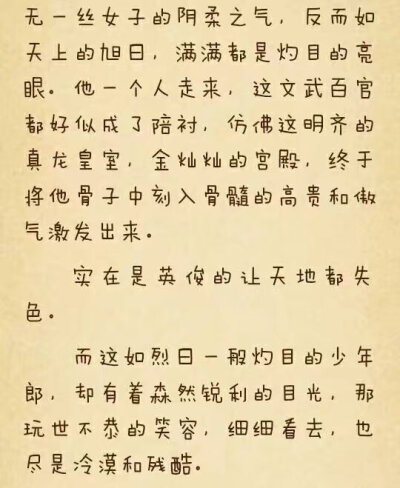 无一丝女子的阴柔之气，反而如
天上的旭日，满满都是灼目的亮
眼。他一个人走来，这文武百官
都好似成了陪衬，仿佛这明齐的
真龙皇室，金灿灿的宫殿，终于
将他骨子中刻入骨髓的高贵和傲
气激发出来。
实在是英俊的让天地都失
色。
而这如烈日一般灼目的少年
郎，却有着森然锐利的目光，那
玩世不恭的笑容，细细看去，也
尽是冷漠和残酷。